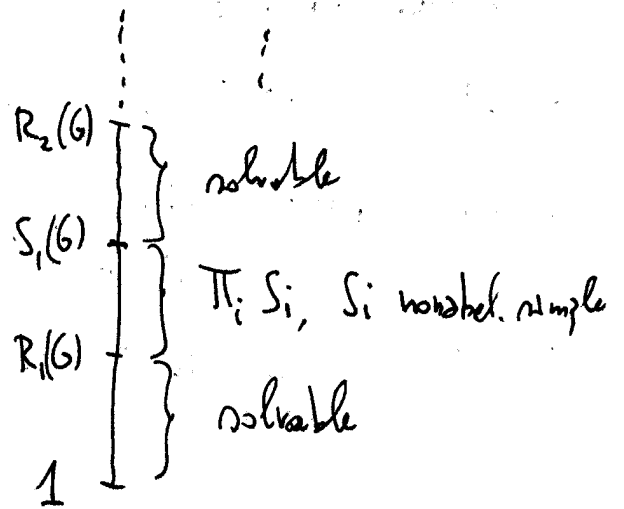 R₂(G)
solvable
S₁(G)
∏ᵢ Sᵢ, Sᵢ nonabel. simple
R₁(G)
solvable
1